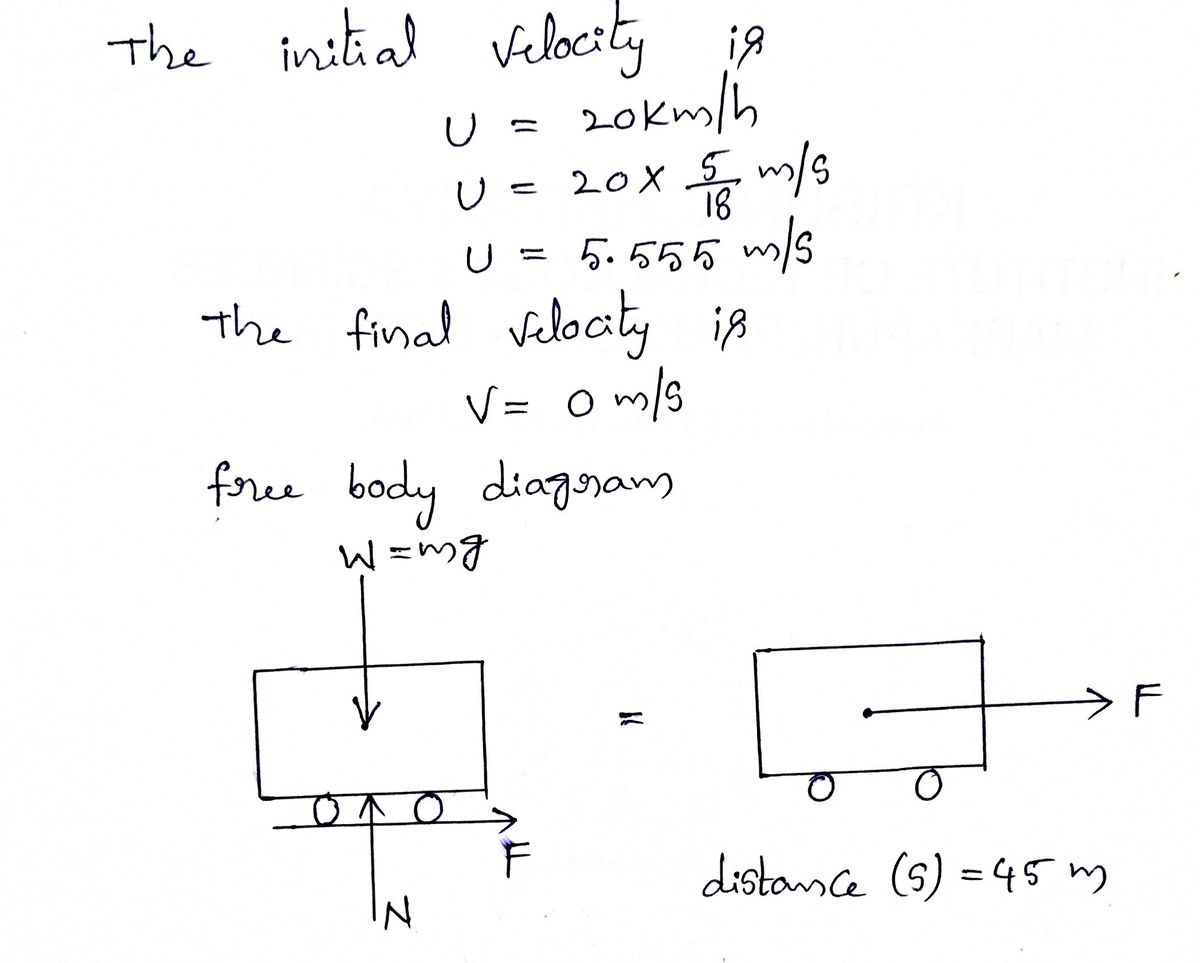 The initial velocity is
U = 20Km/h
U = 20 x 5/18 m/s
U = 5.555 m/s
The final velocity is
V = 0 m/s
free body diagram
W = mg
= F
F
N
distance (S) = 45 m